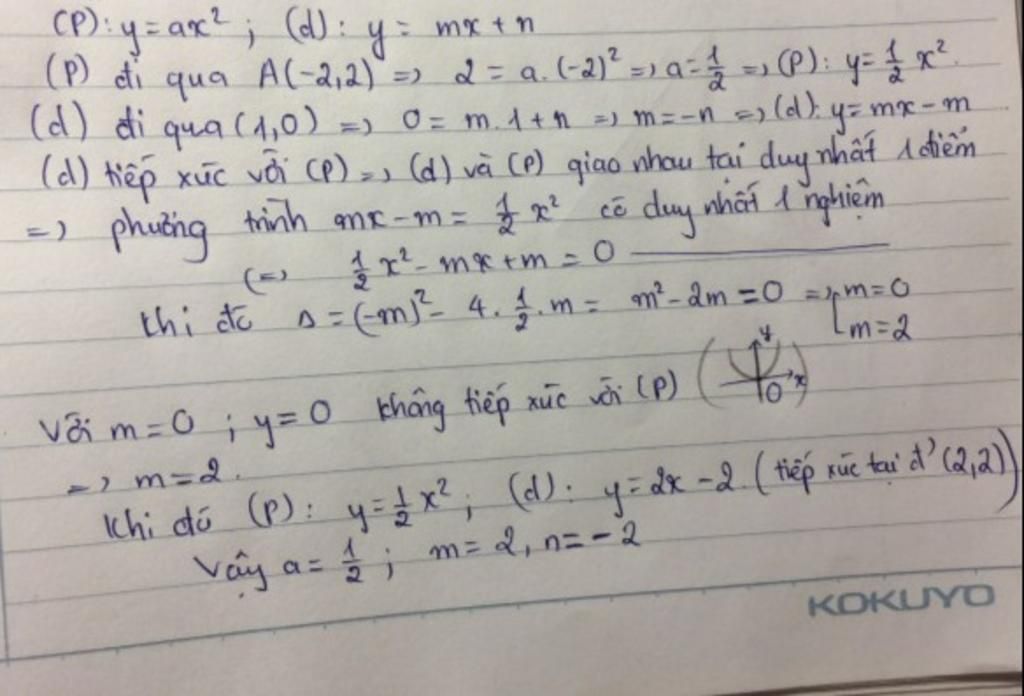 (P): y = ax² ; (d): y = mx + n
(P) đi qua A(-2,2) => 2 = a.(-2)² => a = 1/2 => (P): y = 1/2 x².
(d) đi qua (1,0) => 0 = m.1 + n => m = -n => (d): y = mx - m
(d) tiếp xúc với (P) => (d) và (P) giao nhau tại duy nhất 1 điểm
=> phương trình mx - m = 1/2 x² có duy nhất 1 nghiệm
(=> 1/2 x² - mx + m = 0
Khi đó Δ = (-m)² - 4. 1/2 .m = m² - 2m = 0 => [m = 0
m = 2
Với m = 0 ; y = 0 không tiếp xúc với (P) ( y O x )
=> m = 2.
Khi đó (P): y = 1/2 x² ; (d): y = 2x - 2. (tiếp xúc tại đ' (2,2))
Vậy a = 1/2 ; m = 2, n = -2
KOKUYO